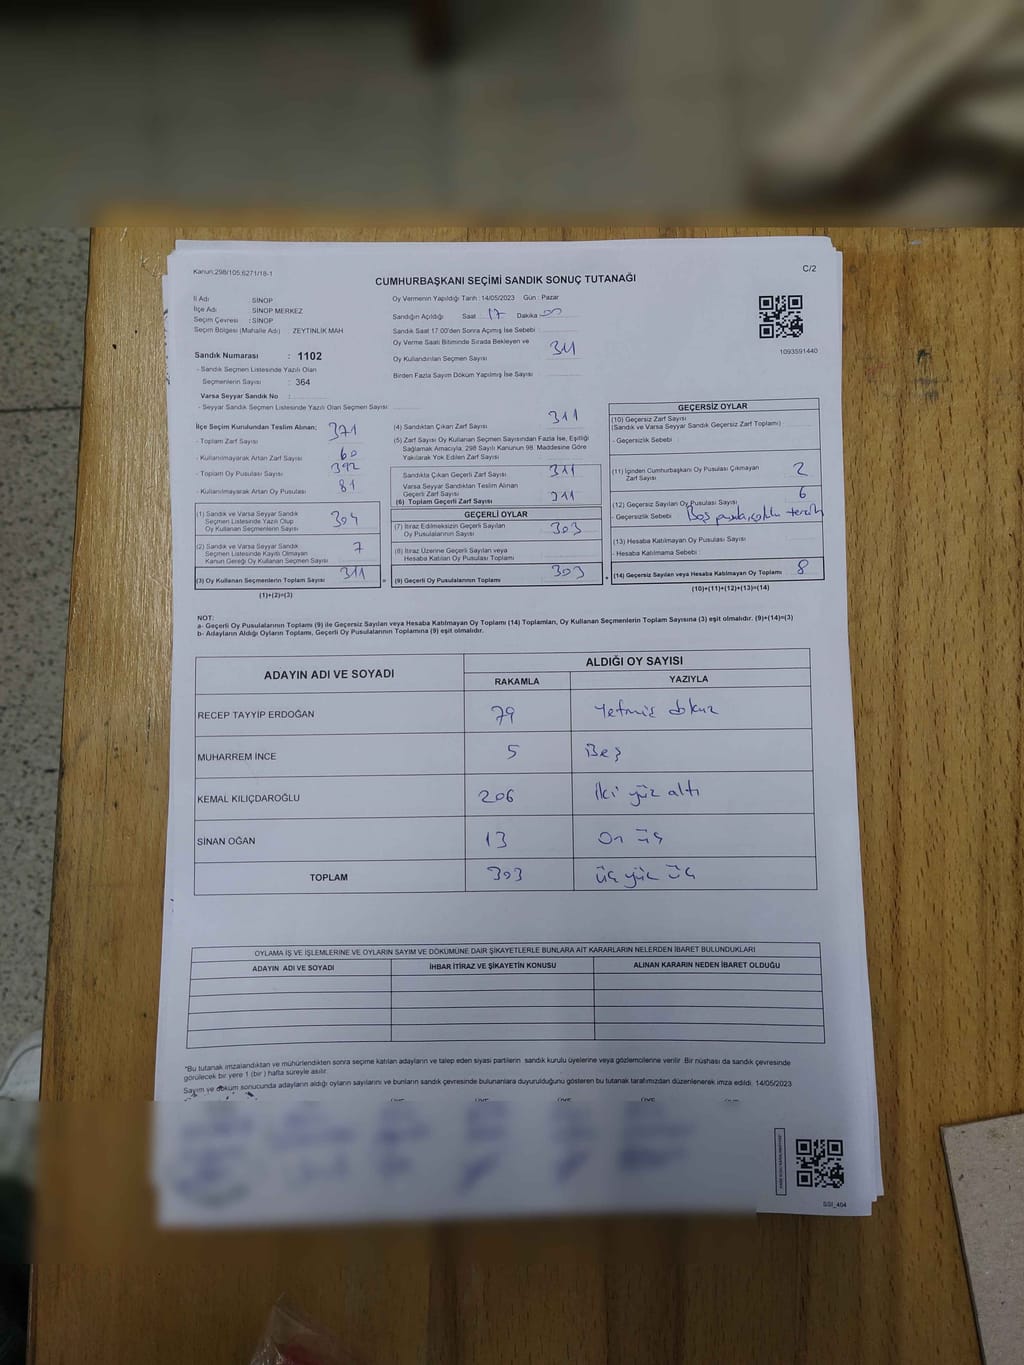 Kanun:298/105;6271/18-1
C/2
CUMHURBAŞKANI SEÇİMİ SANDIK SONUÇ TUTANAĞI
İl Adı : SİNOP
İlçe Adı : SİNOP MERKEZ
Seçim Çevresi : SİNOP
Seçim Bölgesi (Mahalle Adı) : ZEYTİNLİK MAH
Sandık Numarası : 1102
- Sandık Seçmen Listesinde Yazılı Olan
Seçmenlerin Sayısı : 364
Varsa Seyyar Sandık No :
- Seyyar Sandık Seçmen Listesinde Yazılı Olan Seçmen Sayısı :
Oy Vermenin Yapıldığı Tarih : 14/05/2023 Gün : Pazar
Sandığın Açıldığı Saat 17 Dakika 00
Sandık Saat 17:00'den Sonra Açılmış İse Sebebi :
Oy Verme Saati Bitiminde Sırada Bekleyen ve
Oy Kullandırılan Seçmen Sayısı 311
Birden Fazla Sayım Döküm Yapılmış İse Sayısı :
1093591440
İlçe Seçim Kurulundan Teslim Alınan;
- Toplam Zarf Sayısı 371
- Kullanılmayarak Artan Zarf Sayısı 60
- Toplam Oy Pusulası Sayısı 392
- Kullanılmayarak Artan Oy Pusulası 81
(1) Sandık ve Varsa Seyyar Sandık
Seçmen Listesinde Yazılı Olup
Oy Kullanan Seçmenlerin Sayısı 304
(2) Sandık ve Varsa Seyyar Sandık
Seçmen Listesinde Kayıtlı Olmayan
Kanun Gereği Oy Kullanan Seçmen Sayısı 7
(3) Oy Kullanan Seçmenlerin Toplam Sayısı 311
(1)+(2)=(3)
(4) Sandıktan Çıkan Zarf Sayısı 311
(5) Zarf Sayısı Oy Kullanan Seçmen Sayısından Fazla İse, Eşitliği
Sağlamak Amacıyla; 298 Sayılı Kanunun 98. Maddesine Göre
Yakılarak Yok Edilen Zarf Sayısı
Sandıkta Çıkan Geçerli Zarf Sayısı 311
Varsa Seyyar Sandıktan Teslim Alınan
Geçerli Zarf Sayısı
(6) Toplam Geçerli Zarf Sayısı 311
GEÇERLİ OYLAR
(7) İtiraz Edilmeksizin Geçerli Sayılan
Oy Pusulalarının Sayısı 303
(8) İtiraz Üzerine Geçerli Sayılan veya
Hesaba Katılan Oy Pusulası Toplamı
= (9) Geçerli Oy Pusulalarının Toplamı 303
GEÇERSİZ OYLAR
(10) Geçersiz Zarf Sayısı
(Sandık ve Varsa Seyyar Sandık Geçersiz Zarf Toplamı)
- Geçersizlik Sebebi :
(11) İçinden Cumhurbaşkanı Oy Pusulası Çıkmayan
Zarf Sayısı 2
(12) Geçersiz Sayılan Oy Pusulası Sayısı 6
- Geçersizlik Sebebi Boş
(13) Hesaba Katılmayan Oy Pusulası Sayısı
- Hesaba Katılmama Sebebi :
+ (14) Geçersiz Sayılan veya Hesaba Katılmayan Oy Toplamı 8
(10)+(11)+(12)+(13)=(14)
NOT:
a- Geçerli Oy Pusulalarının Toplamı (9) ile Geçersiz Sayılan veya Hesaba Katılmayan Oy Toplamı (14) Toplamları, Oy Kullanan Seçmenlerin Toplam Sayısına (3) eşit olmalıdır. (9)+(14)=(3)
b- Adayların Aldığı Oyların Toplamı, Geçerli Oy Pusulalarının Toplamına (9) eşit olmalıdır.
ADAYIN ADI VE SOYADI ALDIĞI OY SAYISI
RAKAMLA YAZIYLA
RECEP TAYYİP ERDOĞAN 79 Yetmiş dokuz
MUHARREM İNCE 5 Beş
KEMAL KILIÇDAROĞLU 206 İki yüz altı
SİNAN OĞAN 13 On üç
TOPLAM 303 üç yüz üç
OYLAMA İŞ VE İŞLEMLERİNE VE OYLARIN SAYIM VE DÖKÜMÜNE DAİR ŞİKAYETLERLE BUNLARA AİT KARARLARIN NELERDEN İBARET BULUNDUKLARI
ADAYIN ADI VE SOYADI İHBAR İTİRAZ VE ŞİKAYETİN KONUSU ALINAN KARARIN NEDEN İBARET OLDUĞU
*Bu tutanak imzalandıktan ve mühürlendikten sonra seçime katılan adayların ve talep eden siyasi partilerin sandık kurulu üyelerine veya gözlemcilerine verilir. Bir nüshası da sandık çevresinde
görülecek bir yere 1 (bir) hafta süreyle asılır.
Sayım ve döküm sonucunda adayların aldığı oyların sayılarını ve bunların sandık çevresinde bulunanlara duyurulduğunu gösteren bu tutanak tarafımızdan düzenlenerek imza edildi. 14/05/2023
SSI_404